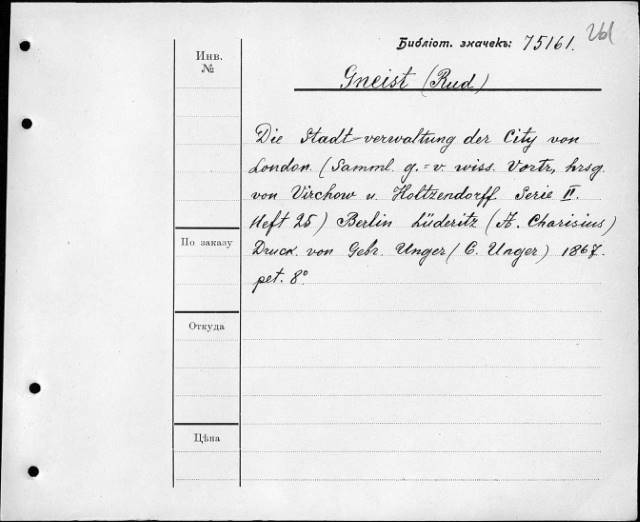 Vol
Библіот. значекъ: 75161.
Инв.
№
Gneist (Rud.)
Die Stadt-verwaltung der City von
London. (Samml. g.=v. wiss. Vortr., hrsg.
von Virchow u. Holtzendorff Serie II.
Heft 25) Berlin Lüderitz (A. Charisius)
Druck. von Gebr. Unger (C. Unger) 1867.
pet. 8°
По заказу
Откуда
Цѣна